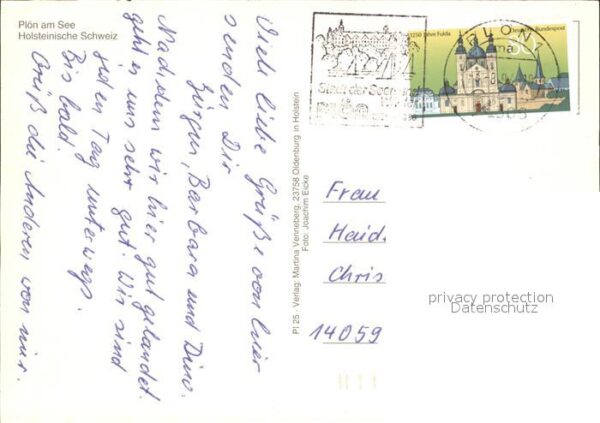 Plön am See
Holsteinische Schweiz
Viele liebe Grüße von hier
senden Dir
Jürgen, Barbara und Dino.
Nachdem wir hier gut gelandet
geht es uns sehr gut. Wir sind
jeden Tag unterwegs.
Bis bald.
Grüß die Anderen von mir.
Pl 25 - Verlag: Martina Venneberg, 23758 Oldenburg in Holstein
Foto: Joachim Eicke
Stadt der Seen
1250 Jahre Fulda
Deutsche Bundespost
Frau
Heid.
Chris
14059
privacy protection
Datenschutz